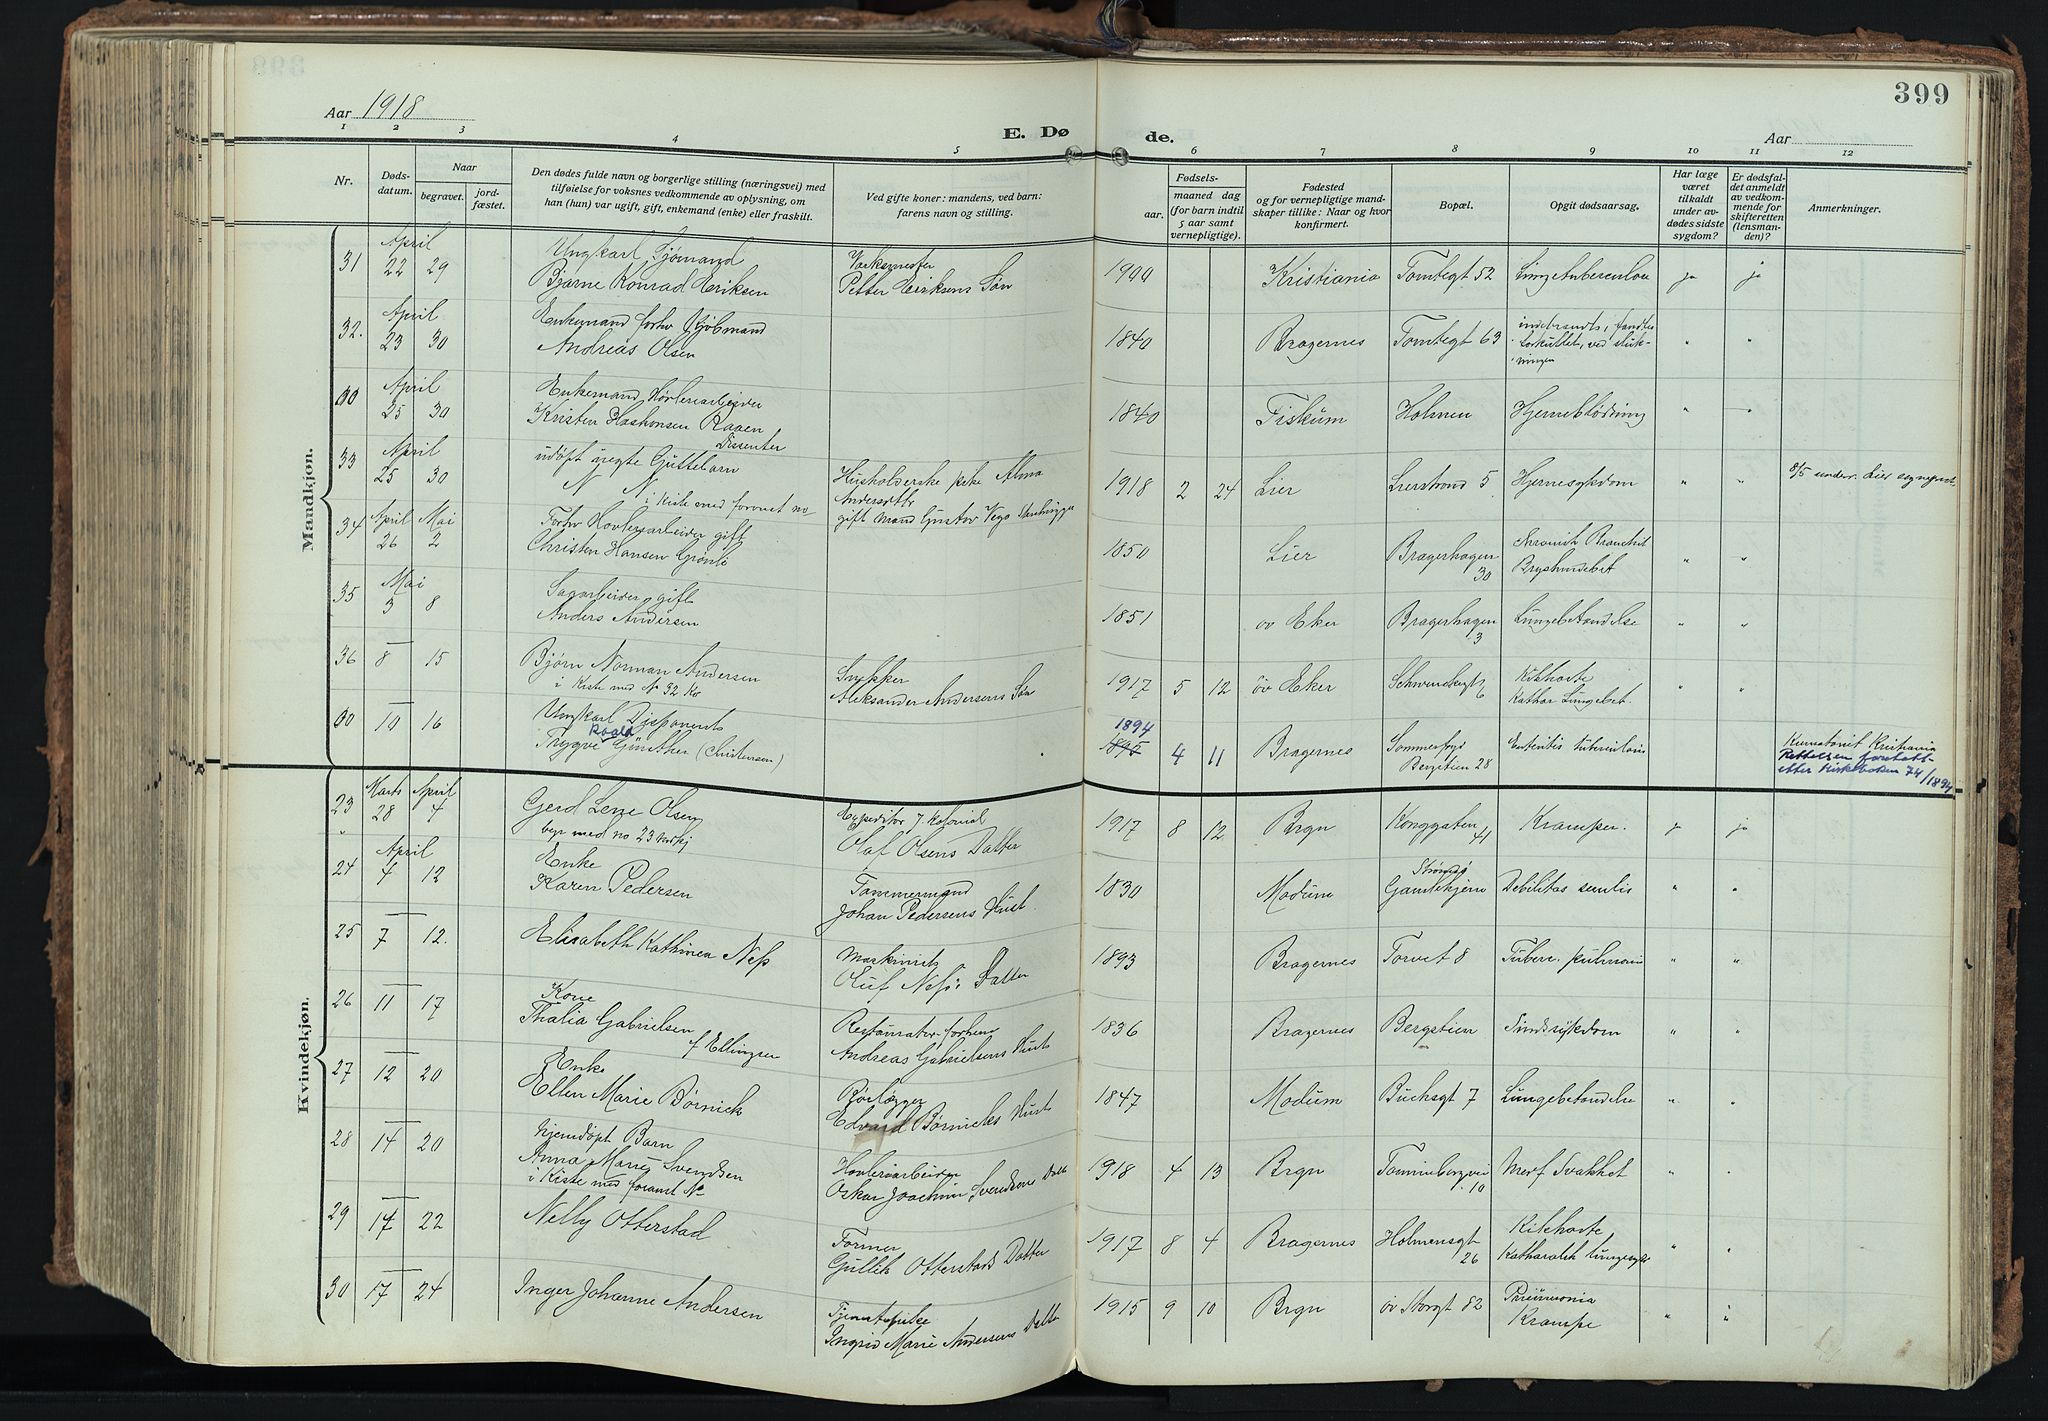 399
Aar 1918
E. Dø de.
Aar
1 2 3 4 5 6 7 8 9 10 11 12
Nr.
Dødsdatum.
Naar
begravet.
jordfæstet.
Den dødes fulde navn og borgerlige stilling (næringsvei) med
tilføielse for voksnes vedkommende av oplysning, om
han (hun) var ugift, gift, enkemand (enke) eller fraskilt.
Ved gifte koner: mandens, ved barn:
farens navn og stilling.
Fødsels-
aar.
maaned dag
(for barn indtil
5 aar samt
vernepligtige).
Fødested
og for vernepligtige mand-
skaper tillike: Naar og hvor
konfirmert.
Bopæl.
Opgit dødsaarsag.
Har læge
været
tilkaldt
under av-
dødes sidste
sygdom?
Er dødsfal-
det anmeldt
av vedkom-
mende for
skifteretten
(lensman-
den)?
Anmerkninger.
Mandkjøn.
31 April 22 29 Ungkarl Sjømand
Bjarne Konrad Eriksen
Verksmester
Petter Eriksens Søn 1900 Kristiania Tomtegt 52 ja ja
32. April 23 30 Enkemand forhv
Andreas Olsen 1840 Bragernes Tomtegt 63 " "
00 April 25 30 Enkemand Høvleriarbeider
Kristen Haakonsen Raaen
Dissenter 1840 Fiskum Holmen Hjerneblødning "
33 April 25 30 udøpt uegte Guttebarn
N N
i Kiste med forannt no
Husholderske pike Alma
Andersdtr
gift mand Gustav 1918 2 24 Lier Lierstrand 5 Hjernesykdom " " 8/5 under. Lier sogneprest
34 April 26 Mai 2 Forhv Høvleriarbeider gift
Christen Hansen Grønli 1850 Lier Bragerhagen 30 Kronisk Bronchit
Brysthindebet " "
35 Mai 3 8 Sagarbeider gift
Anders Andersen 1851 øv Eker Bragerhagen 3 Lungebetændelse " "
36 8 15 Bjørn Norman Andersen
i Kiste med No 32 Kv
Snekker
Aleksander Andersens Søn 1917 5 12 øv Eker Schwenckegt 6 Kikhoste
Kathar Lungebet. " "
00 10 16 Ungkarl Disponent
Trygve Roald Günther (Christensen) 1894 1895 4 11 Bragernes Sommerfryd
Bergstien 28 Enteritis tuberculosis
Krematoriet Kristiania
Rettelsen foretatt
etter kirkeboken 74/1894
Kvindekjøn.
23 Marts 28 April 4 Gerd Lene Olsen
begr med no 23 Mndkj
Expeditør i Kolonial
Olaf Olsens Datter 1917 8 12 Brgn Konggaten 41 Kramper. ja ja
24 April 4 12 Enke
Karen Pedersen
Tømmermand
Johan Pedersens Hust. 1830 Modum Strømsø
Gamlehjem Debilitas senilis " "
25 7 12. Elisabeth Kathinca Ness
Maskinist
Oluf Ness's Datter 1893 Bragernes Torvet 8 Tuberc. pulmonis " "
26 11 17 Kone
Thalia Gabrielsen
f Ellingsen
Restauratør forhenv
Andreas Gabrielsens Hust 1836 Bragernes Bergstien Sindssykdom " "
27 12 20 Enke
Ellen Marie Børnick
Rørlægger
Edvard Børnicks Hust 1847 Modum Buchsgt 7 Lungebetændelse " "
28 14 20 hjemdøpt Barn
Anna Marie Svendsen
i Kiste med forannt No
Høvleriarbeider
Oskar Joachim Svendsens Datt 1918 4 13 Brgn 10 Medf Svakhet " "
29 14 22 Nelly Otterstad
Former
Gullik Otterstads Datter 1917 8 4 Bragernes Holmensgt 26 Kikhoste
Katharalsk Lungesyge " "
30 17 24 Inger Johanne Andersen
Tjenestepike
Ingrid Marie Andersens Datter 1915 9 10 Brgn øv Storgt 82 Pneumonia
Krampe " "